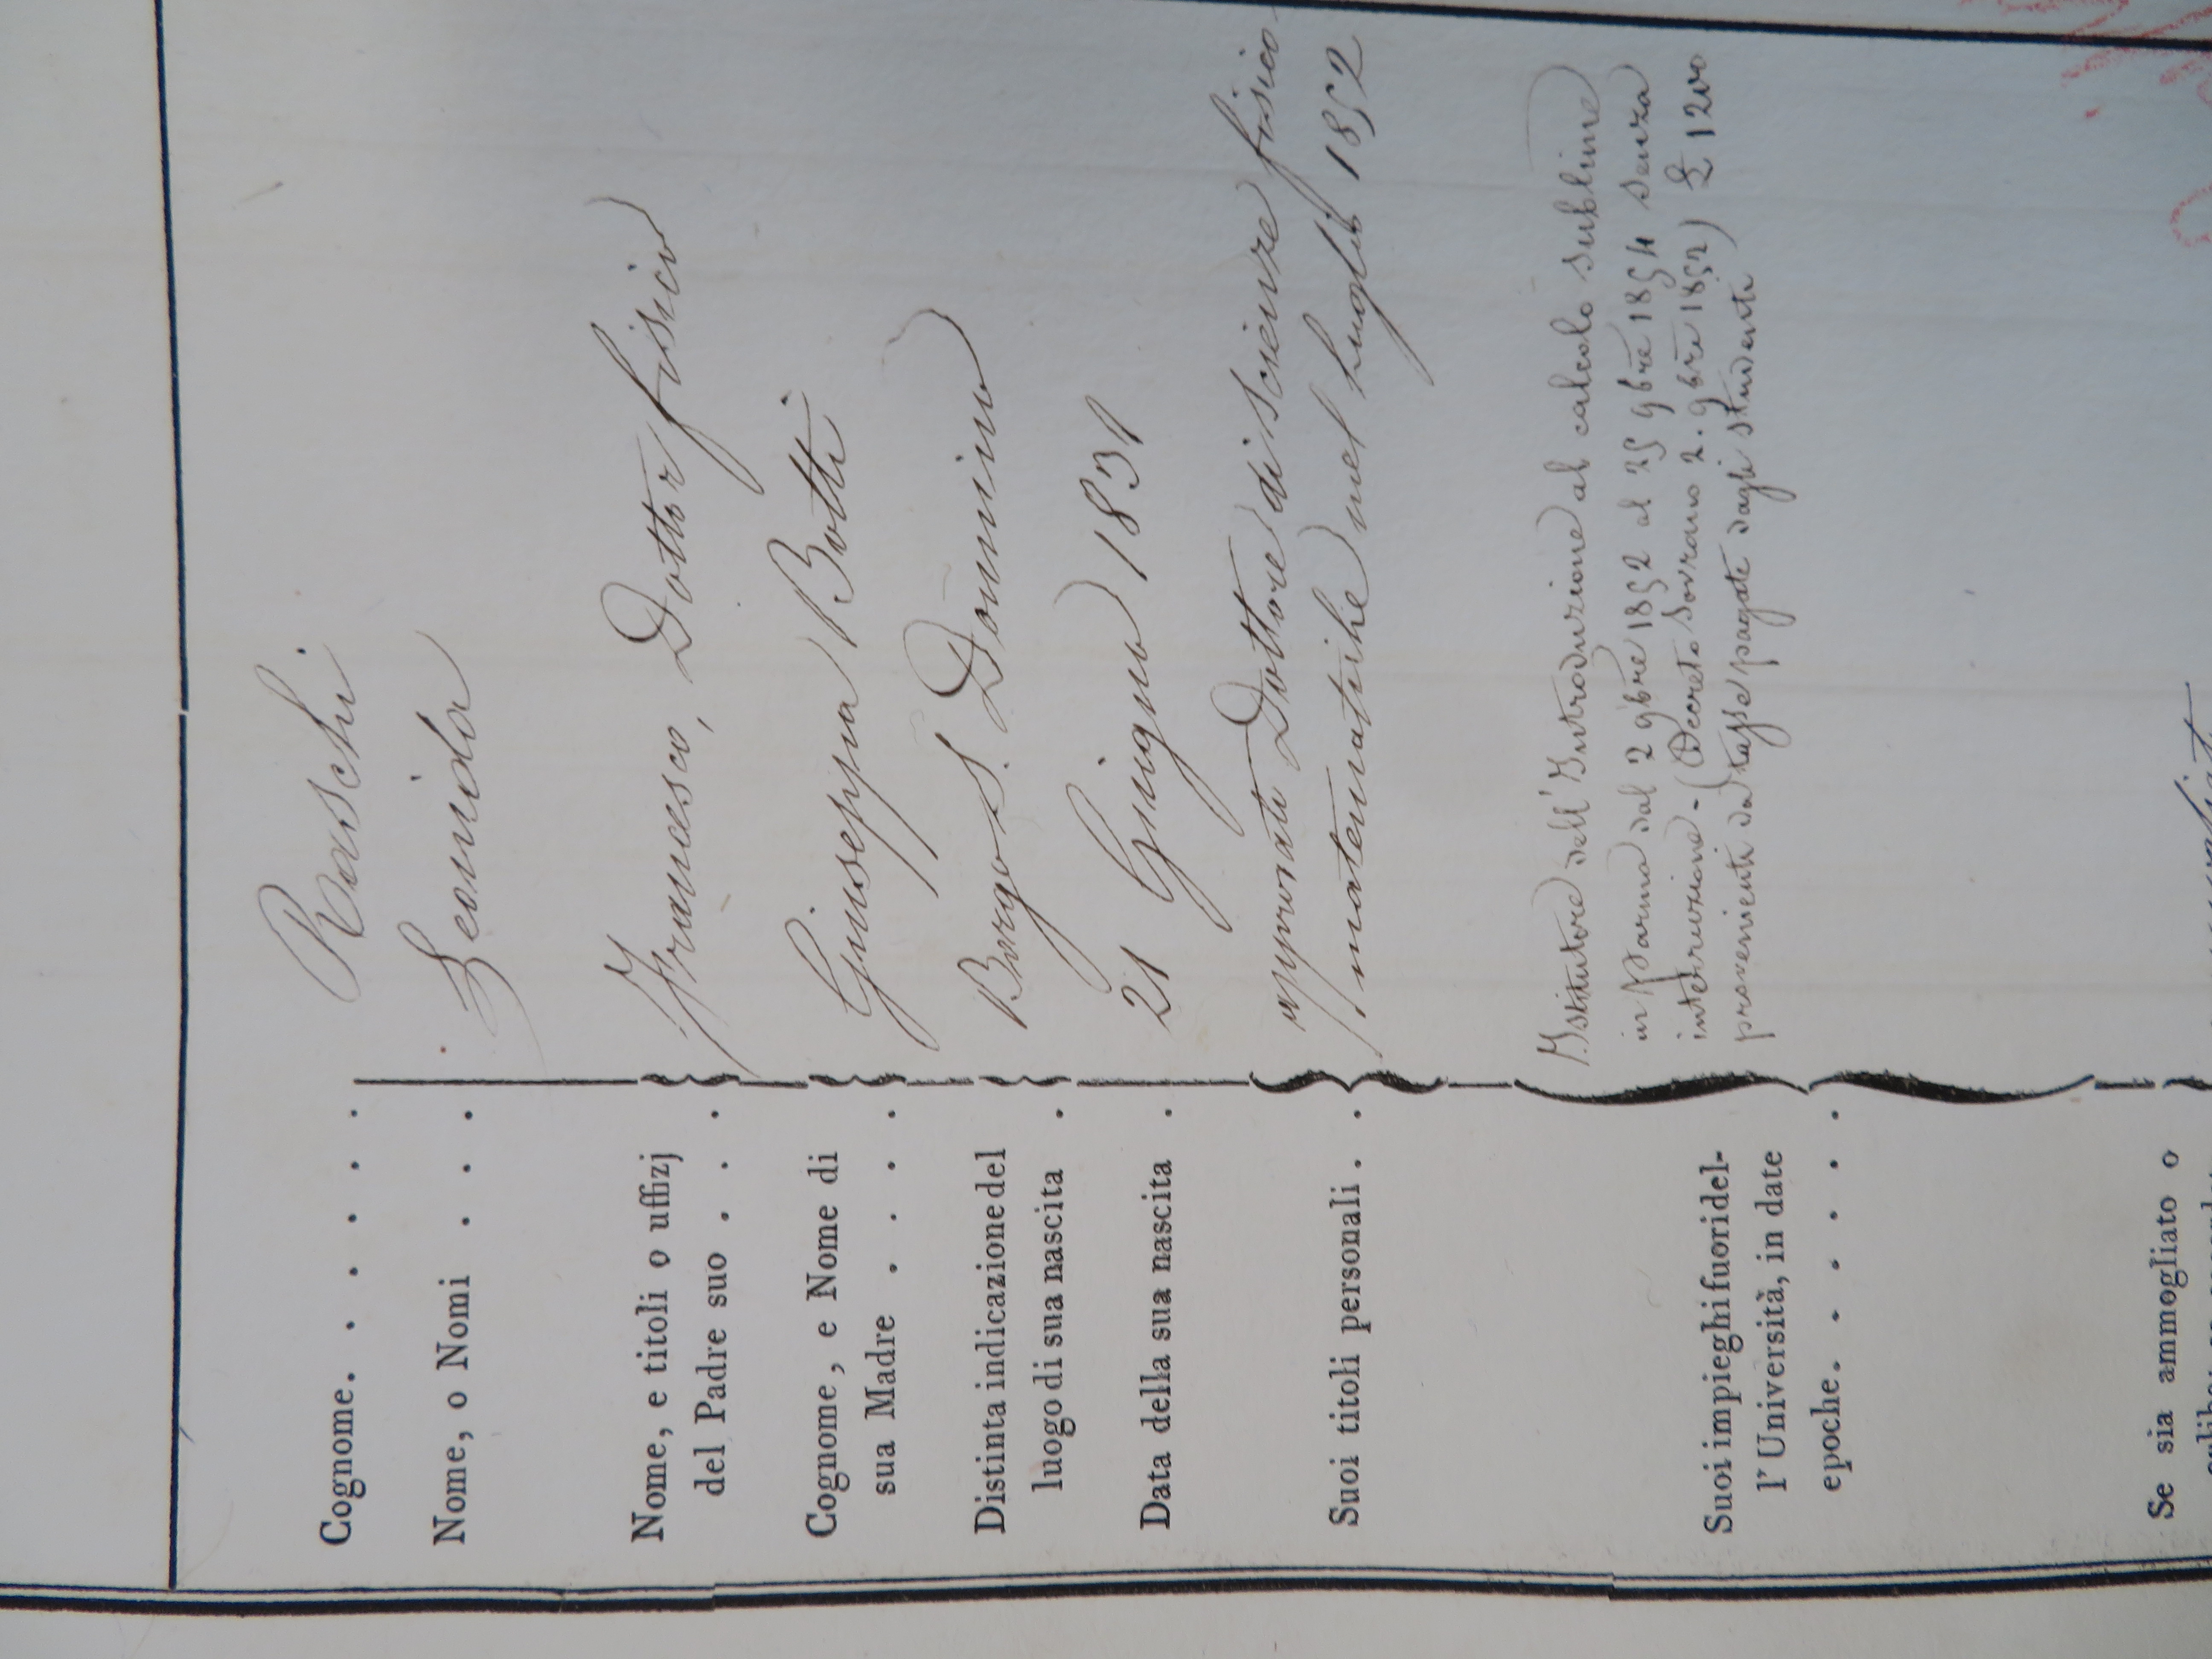 Cognome. . . . . . Raschi
Nome, o Nomi . . . . Leonida
Nome, e titoli o uffizj
del Padre suo . . . Francesco, Dottor fisico
Cognome, e Nome di
sua Madre . . . . Giuseppa Botti
Distinta indicazione del
luogo di sua nascita . Borgo S. Donnino
Data della sua nascita . 21 Giugno 1831
Suoi titoli personali . . approvato Dottore di scienze fisico
matematiche nel Luglio 1852
Suoi impieghi fuori del-
l'Università, in date
epoche. . . . . .
Istitutore dell'Introduzione al calcolo sublime
in Parma dal 2 9bre 1852 al 25 9bre 1854 senza
interruzione - (Decreto Sovrano 2. 9bre 1852) £ 1200
provenienti da tasse pagate dagli studenti
Se sia ammogliato o